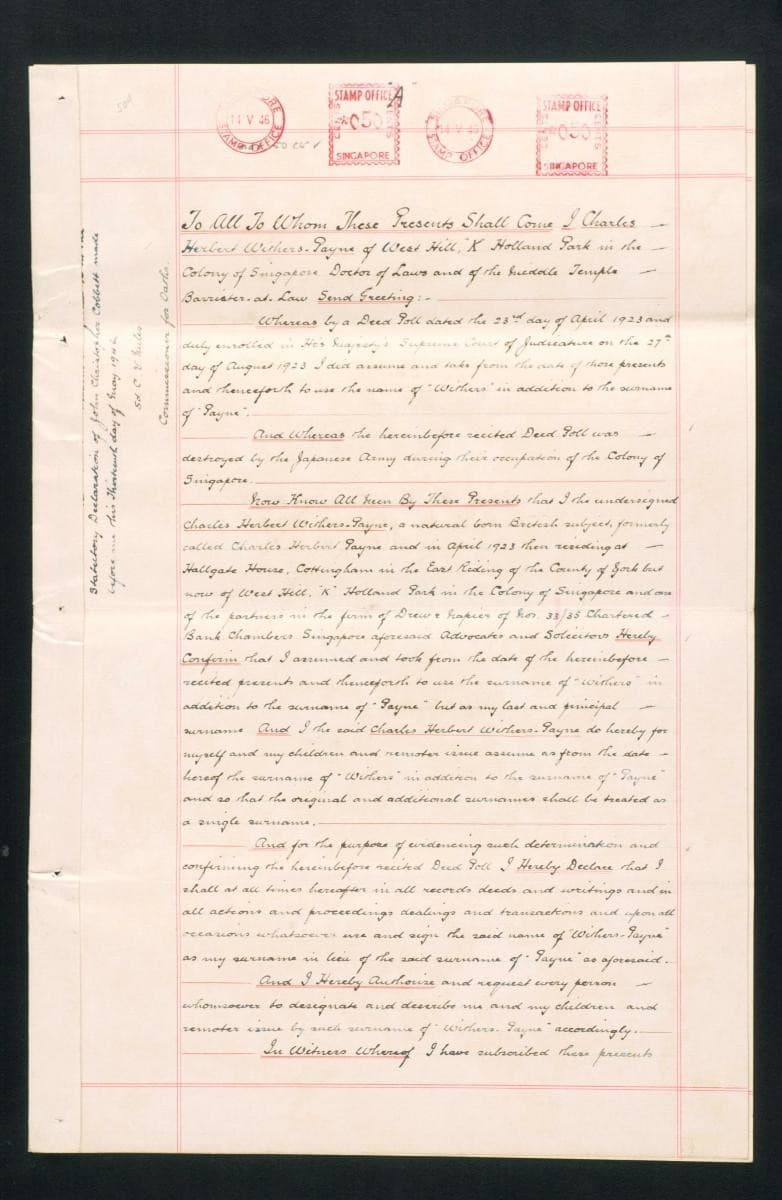 SINGAPORE
14 V 46
STAMP OFFICE
STAMP OFFICE
050
CENTS
CENTS
SINGAPORE
A
50 cts
SINGAPORE
14 V 46
STAMP OFFICE
STAMP OFFICE
050
CENTS
CENTS
SINGAPORE
Statutory Declaration of John Christopher Cobbett made
before me this Thirteenth day of May 1946
Sd. C
Commissioner for Oaths.
To All To Whom These Presents Shall Come I Charles
Herbert Withers-Payne of West Hill, "K" Holland Park in the
Colony of Singapore Doctor of Laws and of the Middle Temple
Barrister-at-Law Send Greeting:-
Whereas by a Deed Poll dated the 23rd day of April 1923 and
duly enrolled in His Majesty's Supreme Court of Judicature on the 27th
day of August 1923 I did assume and take from the date of those presents
and thenceforth to use the name of "Withers" in addition to the surname
of "Payne".
And Whereas the hereinbefore recited Deed Poll was
destroyed by the Japanese Army during their occupation of the Colony of
Singapore.
Now Know All Men By These Presents that I the undersigned
Charles Herbert Withers-Payne, a natural born British subject, formerly
called Charles Herbert Payne and in April 1923 then residing at
Hallgate House, Cottingham in the East Riding of the County of York but
now of West Hill, "K" Holland Park in the Colony of Singapore and one
of the partners in the firm of Drew & Napier of Nos. 33/35 Chartered
Bank Chambers Singapore aforesaid Advocates and Solicitors Hereby
Confirm that I assumed and took from the date of the hereinbefore
recited presents and thenceforth to use the surname of "Withers" in
addition to the surname of "Payne" but as my last and principal
surname And I the said Charles Herbert Withers-Payne do hereby for
myself and my children and remoter issue assume as from the date
hereof the surname of "Withers" in addition to the surname of "Payne"
and so that the original and additional surnames shall be treated as
a single surname.
And for the purpose of evidencing such determination and
confirming the hereinbefore recited Deed Poll I Hereby Declare that I
shall at all times hereafter in all records deeds and writings and in
all actions and proceedings dealings and transactions and upon all
occasions whatsoever use and sign the said name of "Withers-Payne"
as my surname in lieu of the said surname of "Payne" as aforesaid.
And I Hereby Authorise and request every person
whomsoever to designate and describe me and my children and
remoter issue by such surname of "Withers-Payne" accordingly.
In Witness Whereof I have subscribed these presents